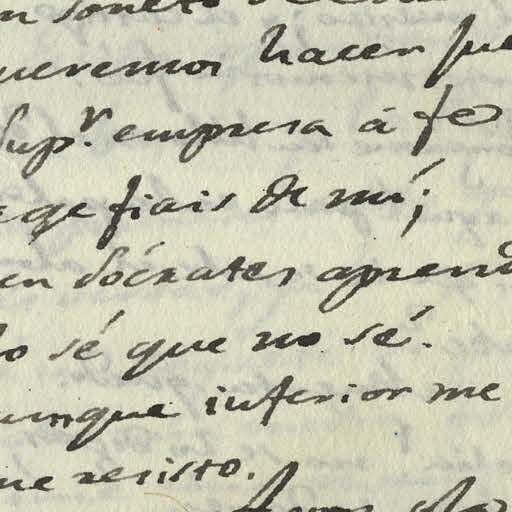 soneto
queremos hacer
Sup.r empresa á fe
qe fiais de mí;
en Sócrates aprend
lo sé que no sé.
aunque inferior me
me resisto.